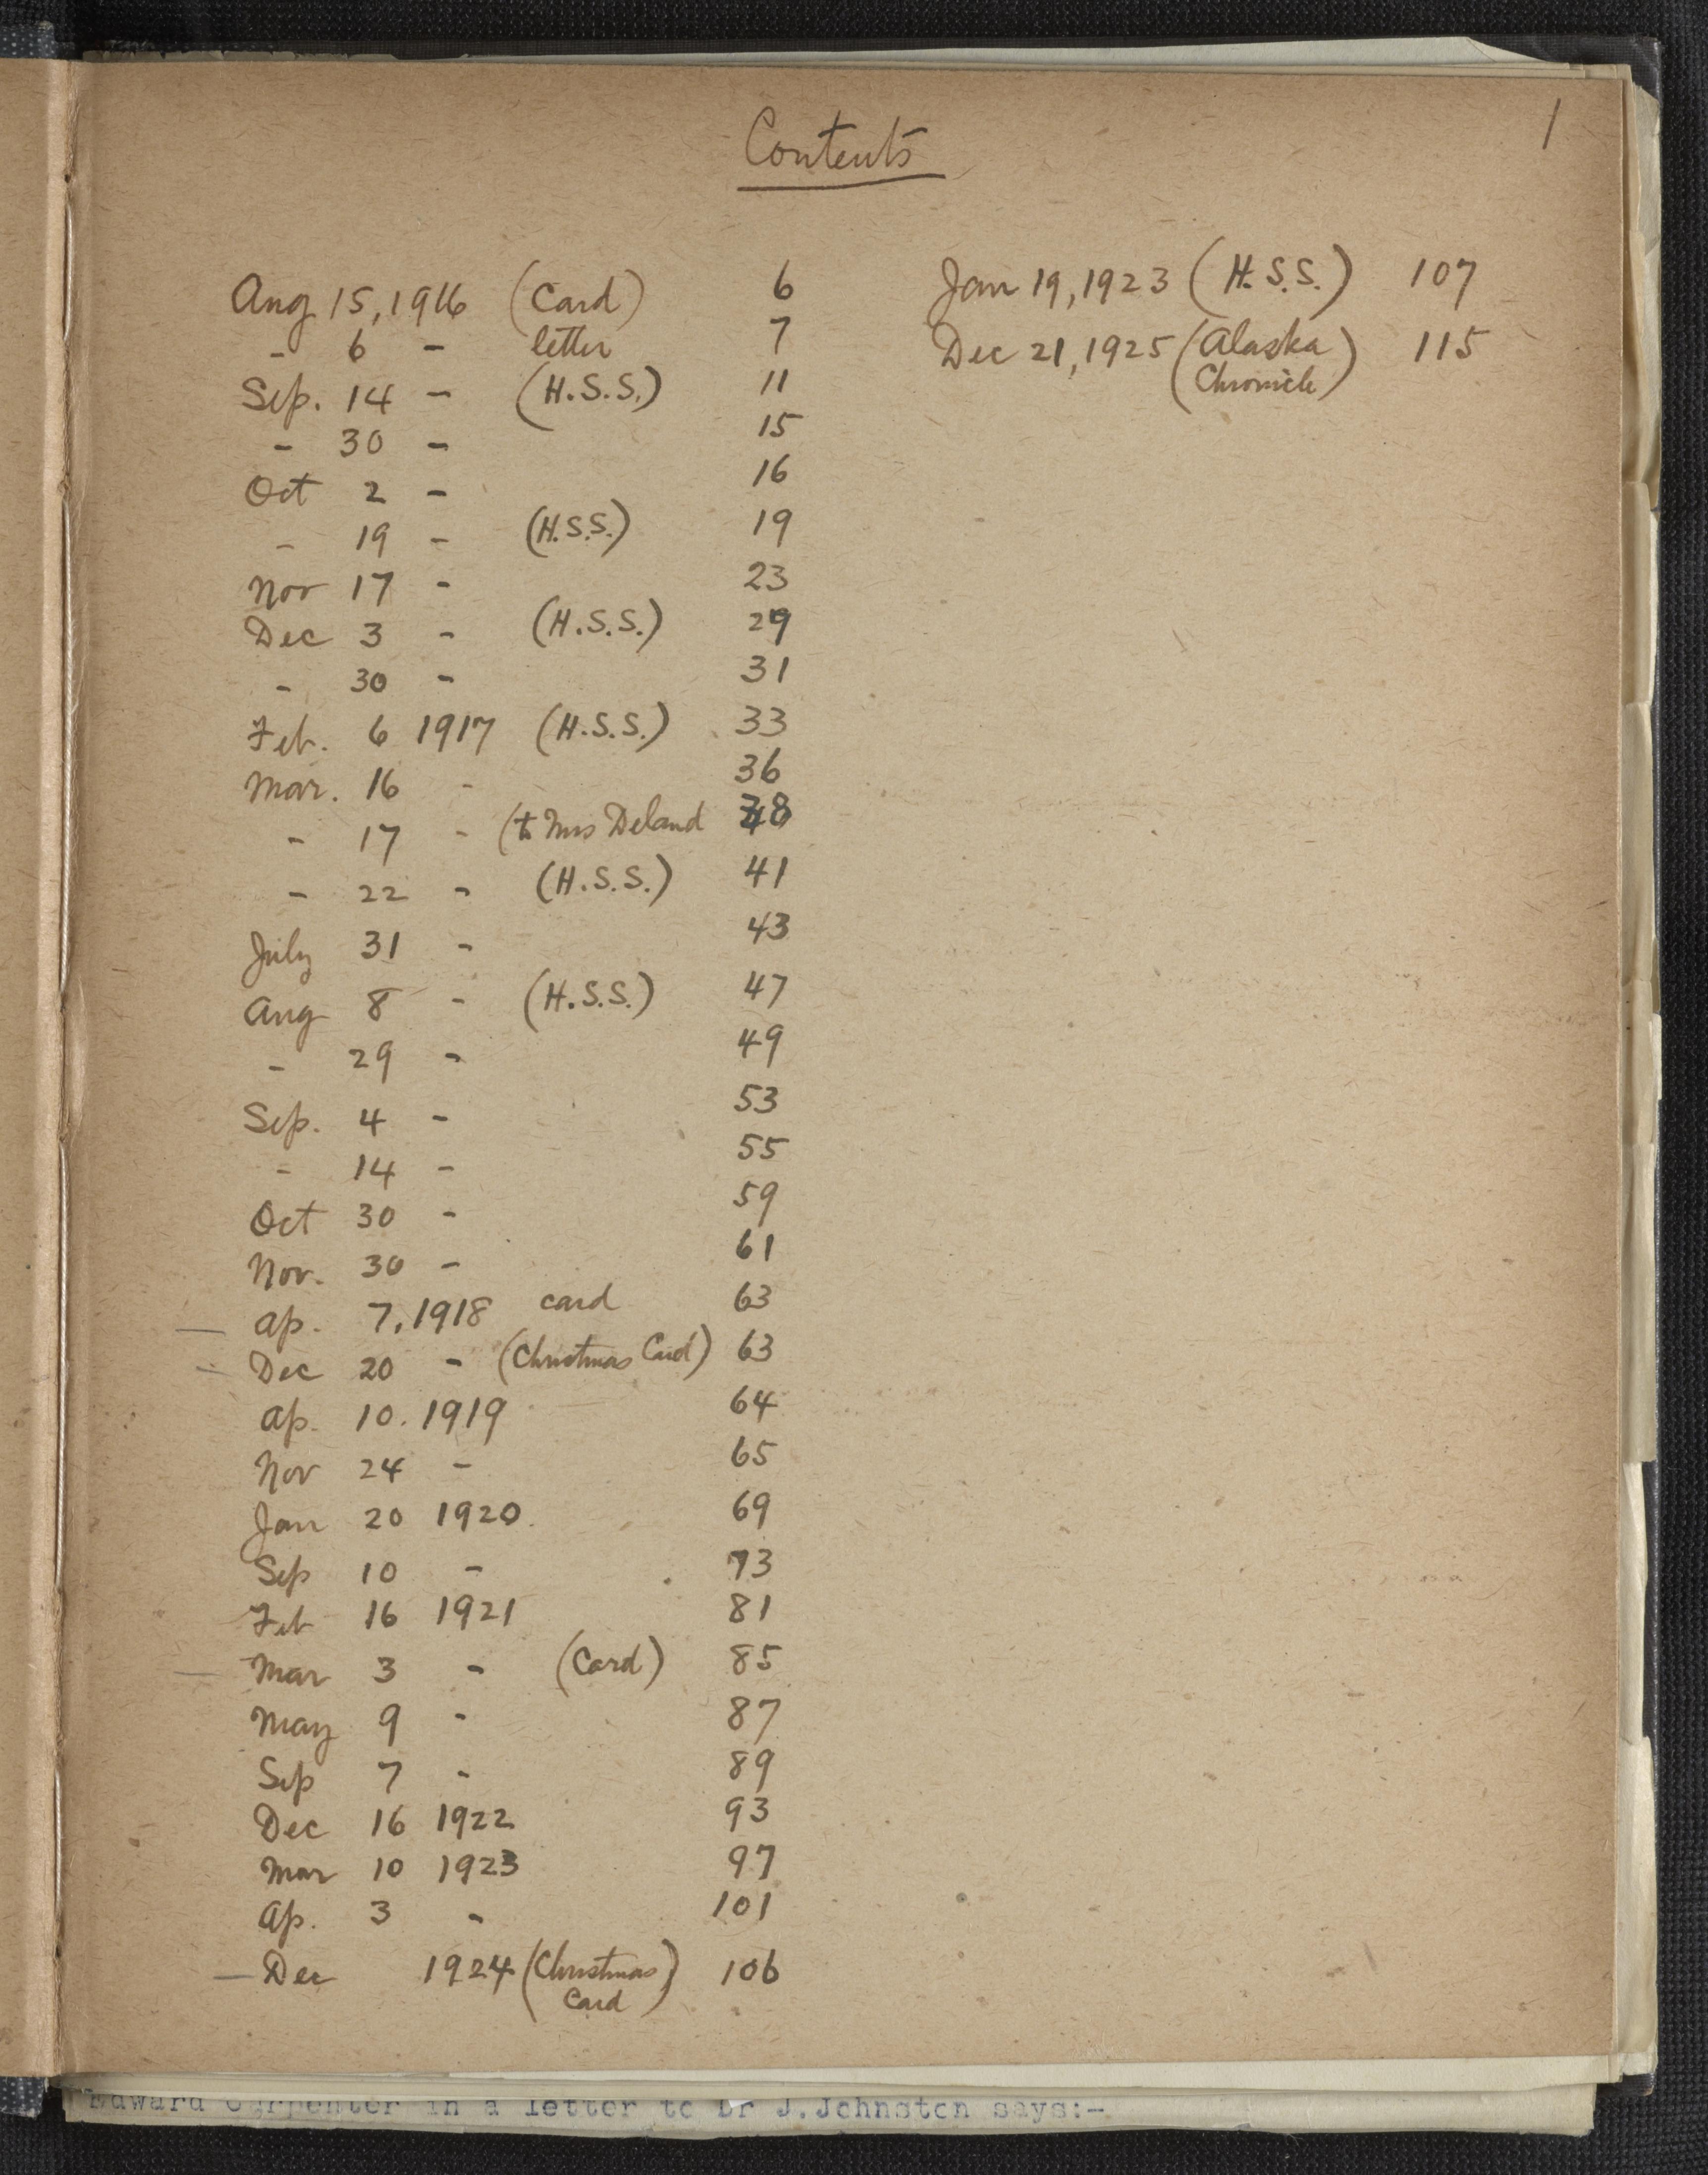 1
Contents
Aug 15, 1916 (Card) 6
- 6 - letter 7
Sep. 14 - (H.S.S.) 11
- 30 - 15
Oct 2 - 16
- 19 - (H.S.S.) 19
Nov 17 - 23
Dec 3 - (H.S.S.) 29
- 30 - 31
Feb. 6 1917 (H.S.S.) 33
Mar. 16 - 36
- 17 - (to Mrs Deland
- 22 - (H.S.S.) 41
July 31 - 43
Aug 8 - (H.S.S.) 47
- 29 - 49
Sep. 4 - 53
- 14 - 55
Oct 30 - 59
Nov. 30 - 61
— Ap. 7, 1918 card 63
- Dec 20 - (Christmas Card) 63
Ap. 10. 1919 64
Nov 24 - 65
Jan 20 1920. 69
Sep 10 - 73
Feb 16 1921 81
— Mar 3 - (Card) 85
May 9 - 87
Sep 7 - 89
Dec 16 1922 93
Mar 10 1923 97
Ap. 3 - 101
— Dec 1924 (Christmas 106
Card)
Jan 19, 1923 (H.S.S.) 107
Dec 21, 1925 (Alaska 115
Chronicle)
Edward Carpenter in a letter to Dr J.Johnston says:-